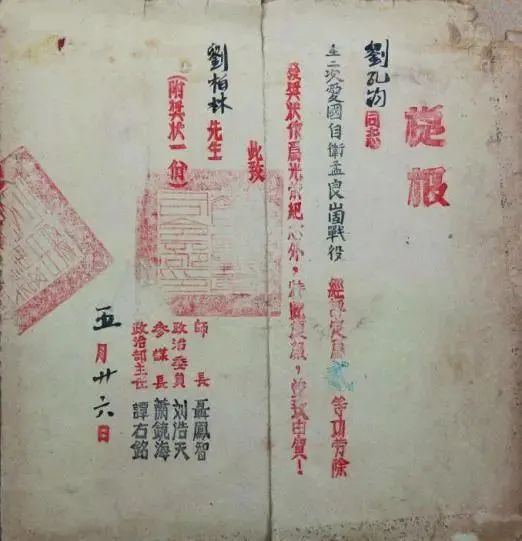 捷报
劉孔同志
在二次愛國自衛孟良崮戰役 經評定爲 等功勞除
發獎狀作爲光榮紀念外，特此捷报，並致由賀！
此致
劉柏林先生
（附獎狀一份）
師長 聶鳳智
政治委員 刘浩天
參謀長 蕭鏡海
政治部主任 譚右銘
五月廿六日